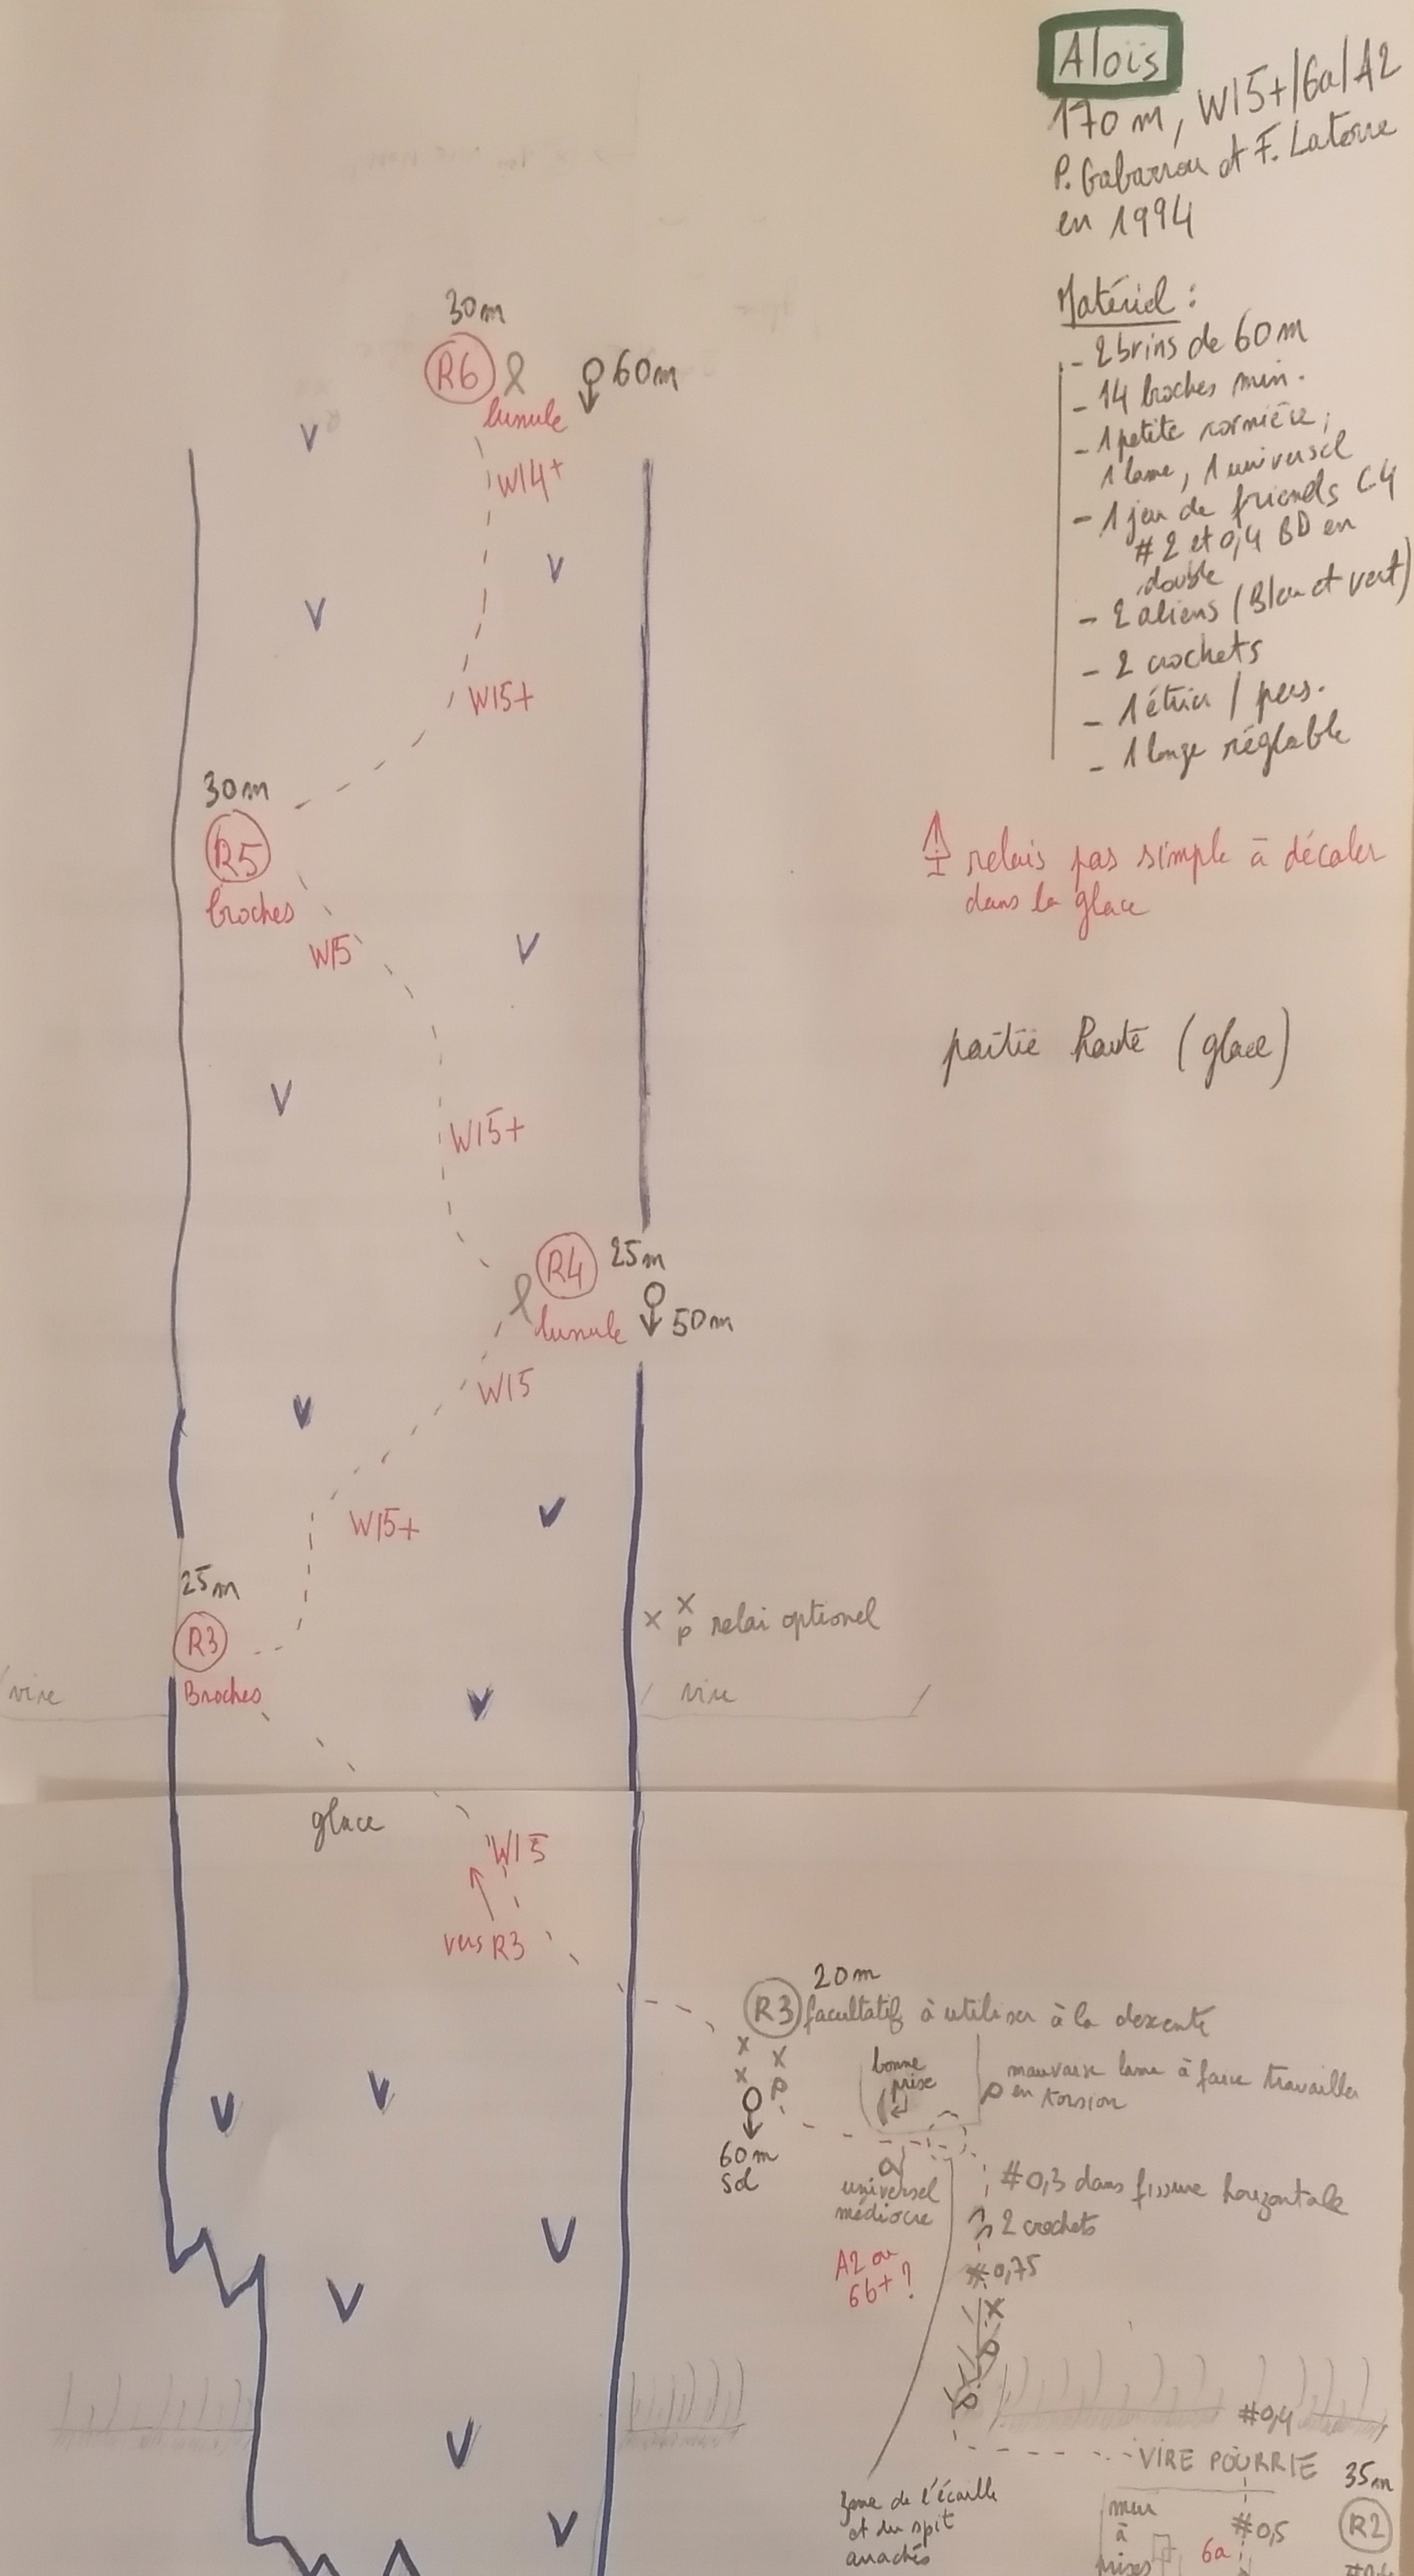 Aloïs
170 m, WI5+/6a/A2
P. Gabarrou et F. Latorre
en 1994
Matériel :
- 2 brins de 60 m
- 14 broches min.
- 1 petite cornière,
1 lame, 1 universel
- 1 jeu de friends C4
#2 et 0,4 BD en
double
- 2 aliens (Bleu et vert)
- 2 crochets
- 1 étrier / pers.
- 1 longe réglable
30m
R6
60m
lunule
WI4+
WI5+
30m
R5
broches
relais pas simple à décaler
dans la glace
WI5
partie haute (glace)
WI5+
R4
25m
lunule
50m
WI5
WI5+
25m
R3
Broches
x x
p relai optionel
vire
vire
glace
WI5
vers R3
20m
R3
facultatif à utiliser à la descente
x x
x p
60m
sol
bonne
prise
mauvaise lame à faire travailler
en torsion
universel
médiocre
#0,3 dans fissure horizontale
2 crochets
A2 ou
6b+ ?
#0,75
x
#0,4
VIRE POURRIE
35m
R2
zone de l'écaille
et du spit
arrachés
mur
à
prises
#0,5
6a